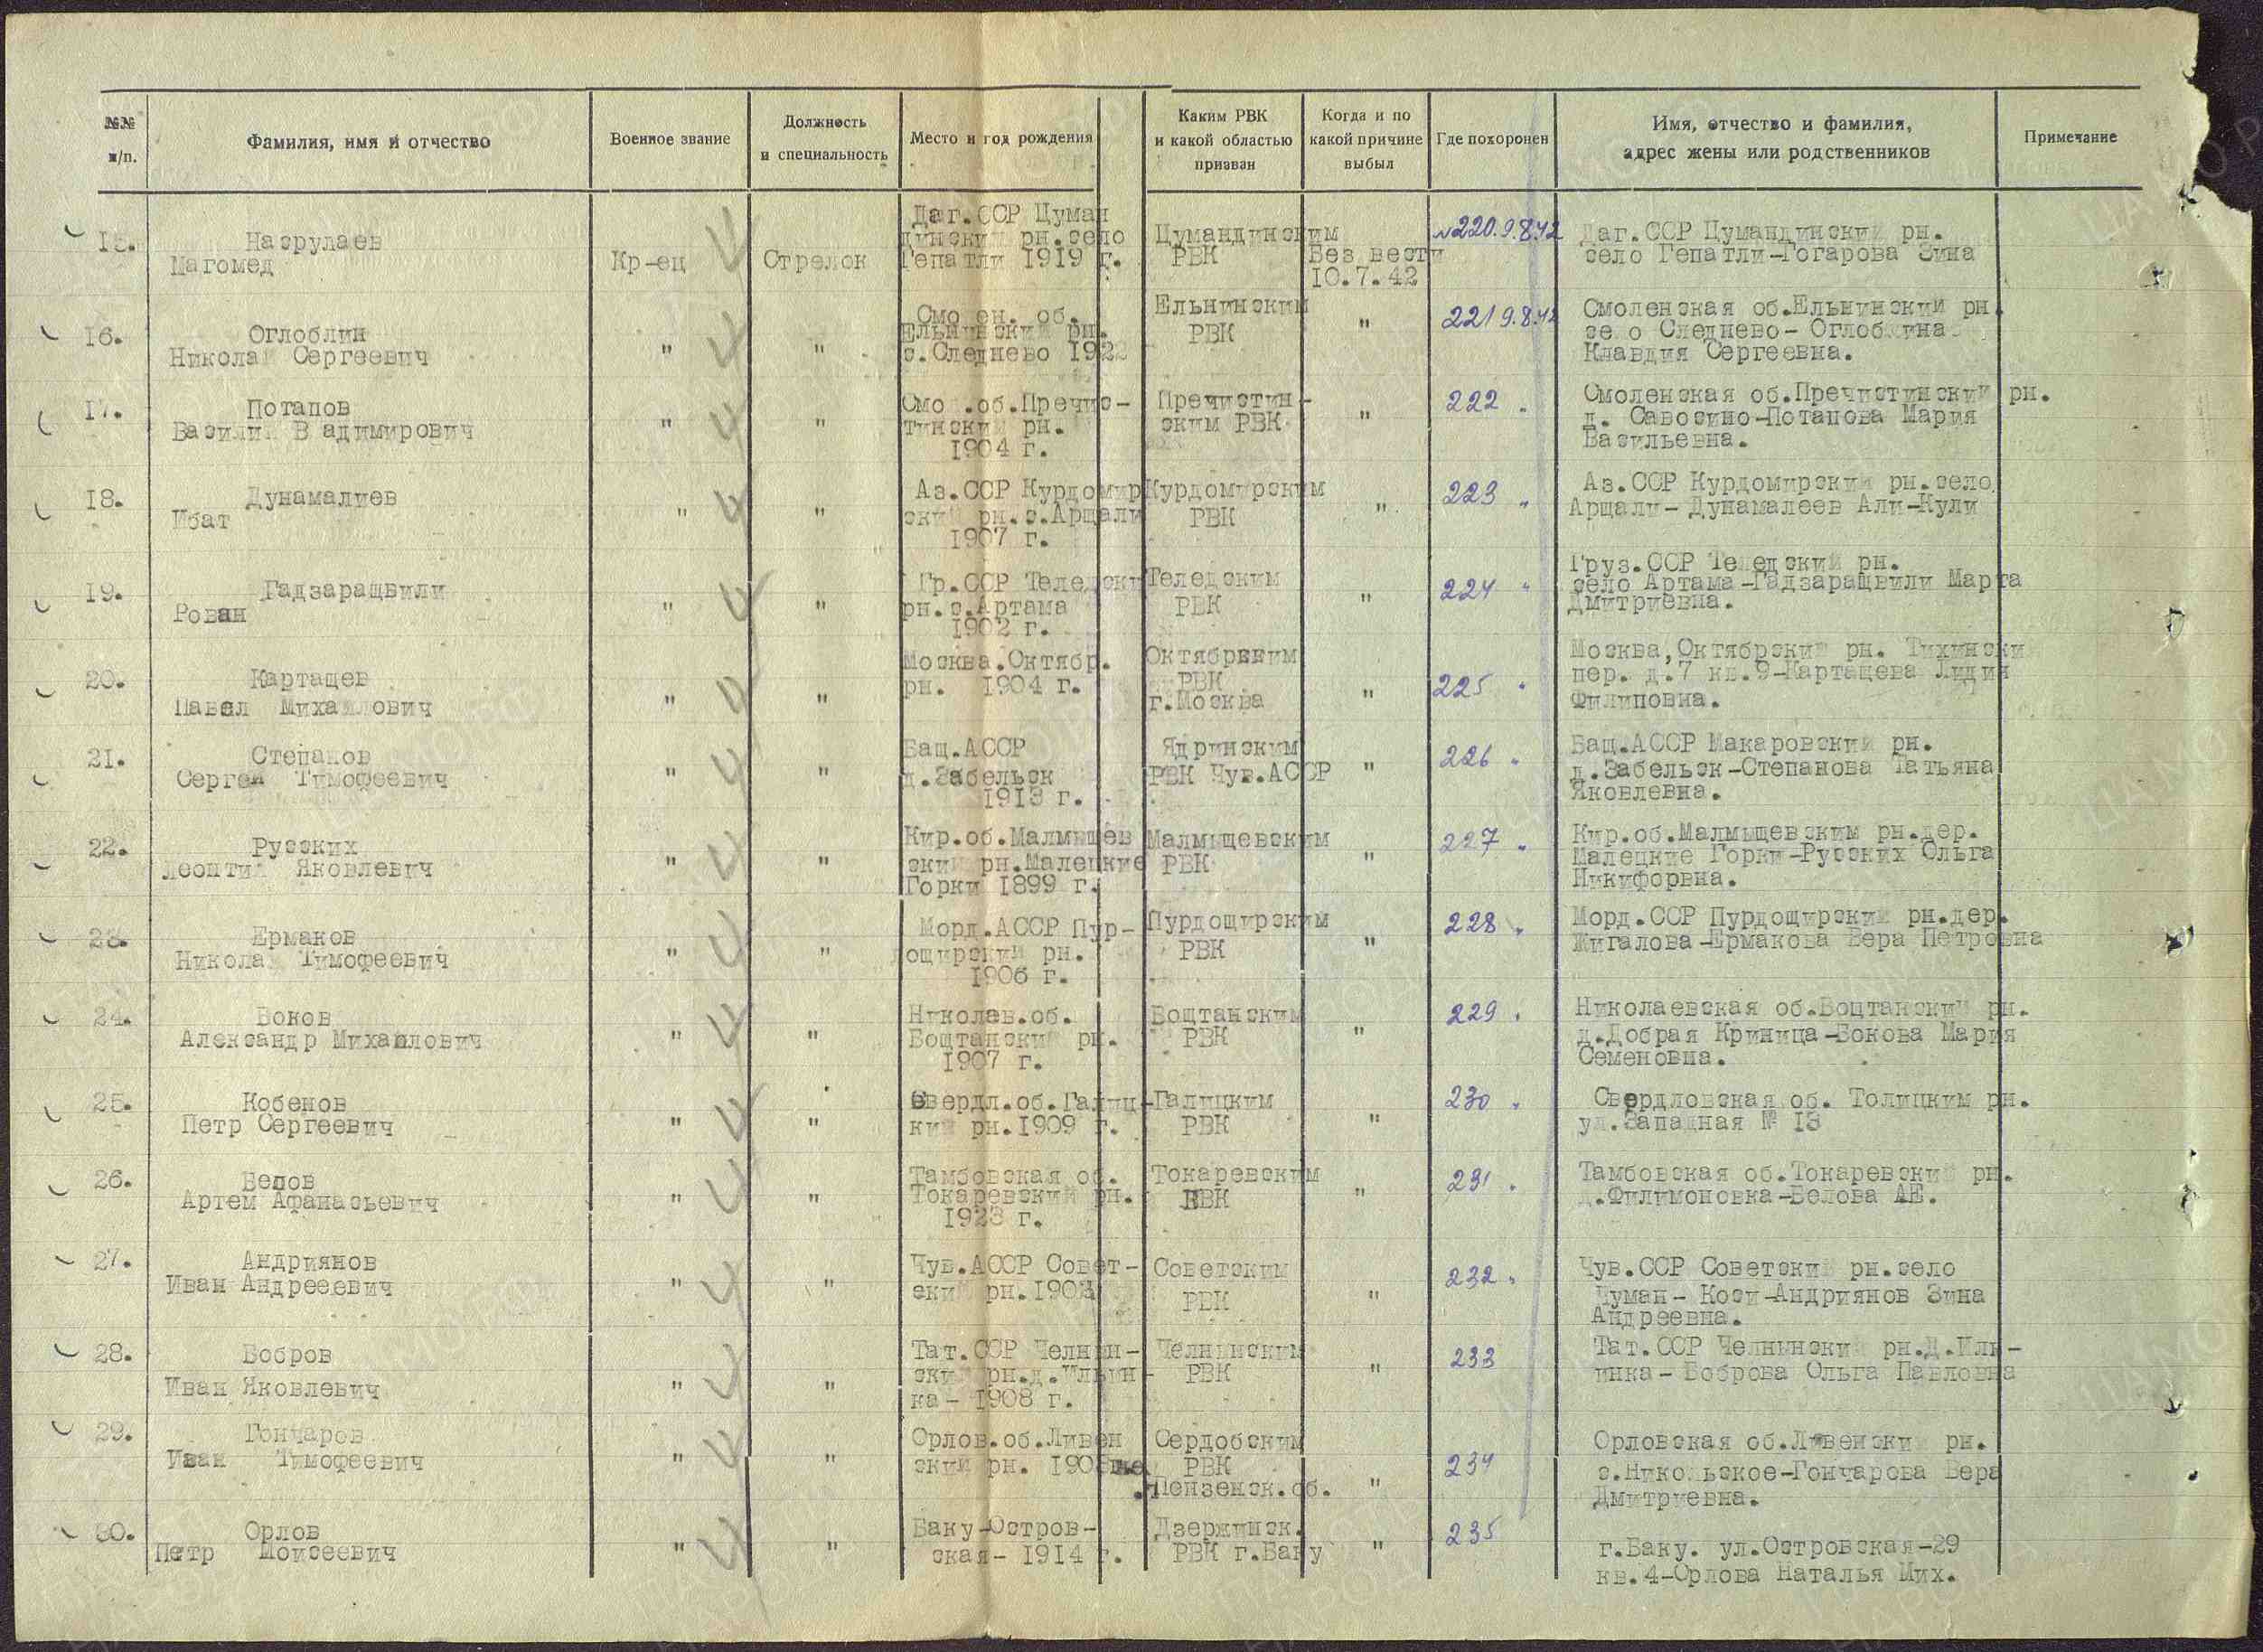 №№ п/п.
Фамилия, имя и отчество
Военное звание
Должность и специальность
Место и год рождения
Каким РВК и какой областью призван
Когда и по какой причине выбыл
Где похоронен
Имя, отчество и фамилия, адрес жены или родственников
Примечание
15. Насрулаев
Магомед
Кр-ец
Стрелок
Даг.ССР Цуман
динский рн.село
Гепатли 1919 г.
Цумандинским
РВК
Без вести
10.7.42
№220.9.8.42
Даг.ССР Цумандинский рн.
село Гепатли-Гогарова Зина
16. Оглоблин
Николай Сергеевич
" "
Смо ен. об.
Ельнинский рн.
с.Следнево 1922
Ельнинским
РВК
"
221 9.8.42
Смоленская об.Ельнинский рн.
се о Следнево- Оглоблина
Клавдия Сергеевна.
17. Потапов
Василий В адимирович
" "
Смо .об.Пречис-
тинский рн.
1904 г.
Пречистин-
ским РВК
"
222 "
Смоленская об.Пречистинский рн.
д. Савосино-Потапова Мария
Васильевна.
18. Дунамалиев
Ибат
" "
Аз.ССР Курдомир
ский рн.с.Арщали
1907 г.
Курдомирским
РВК
"
223 "
Аз.ССР Курдомирский рн.село
Арщали- Дунамалеев Али-Кули
19. Гадзаращвили
Рован
" "
Гр.ССР Теледски
рн.с.Артама
1902 г.
Теледским
РВК
"
224 "
Груз.ССР Теледский рн.
село Артама-Гадзаращвили Марта
Дмитриевна.
20. Картащев
Павел Михайлович
" "
Москва.Октябр.
рн. 1904 г.
Октябрским
РВК
г.Москва
"
225 "
Москва,Октябрский рн. Тихински
пер. д.7 кв.9-Картащева Лидия
Филиповна.
21. Степанов
Сергей Тимофеевич
" "
Бащ.АССР
д.Забельск
1913 г.
Ядринским
РВК Чув.АССР
"
226 "
Бащ.АССР Макаровский рн.
д.Забельск-Степанова Татьяна
Яковлевна.
22. Русских
Леонтий Яковлевич
" "
Кир.об.Малмыщев
ский рн.Малецкие
Горки 1899 г.
Малмыщевским
РВК
"
227 "
Кир.об.Малмыщевским рн.дер.
Малецкие Горки-Русских Ольга
Никифорвна.
23. Ермаков
Николай Тимофеевич
" "
Морд.АССР Пур-
ощирский рн.
1906 г.
Пурдощирским
РВК
"
228 "
Морд.ССР Пурдощирский рн.дер.
Жигалова-Ермакова Вера Петровна
24. Боков
Александр Михайлович
" "
Николав.об.
Бощтанский рн.
1907 г.
Бощтанским
РВК
"
229 "
Николаевская об.Бощтанский рн.
д.Добрая Криница-Бокова Мария
Семеновна.
25. Кобенов
Петр Сергеевич
" "
Свердл.об.Галиц-
кий рн.1909 г.
Галицким
РВК
"
230 "
Свердловская об. Толицким рн.
ул.Западная № 13
26. Белов
Артем Афанасьевич
" "
Тамбовская об.
Токаревский рн.
1923 г.
Токаревским
РВК
"
231 "
Тамбовская об.Токаревский рн.
д.Филимоновка-Белова АЕ.
27. Андриянов
Иван Андрееевич
" "
Чув.АССР Совет-
ский рн.1903
Советским
РВК
"
232 "
Чув.ССР Советский рн.село
Чуман- Коси-Андриянов Зина
Андреевна.
28. Бобров
Иван Яковлевич
" "
Тат.ССР Челнин-
ский рн.д.Ильин-
ка- 1908 г.
Челнинским
РВК
"
233
Тат.ССР Челнынский рн.Д.Иль-
инка- Боброва Ольга Павловна
29. Гончаров
Иван Тимофеевич
" "
Орлов.об.Ливен
ский рн. 1908
Сердобским
РВК
Пензенск.об.
"
234
Орловская об.Ливенский рн.
с.Никольское-Гончарова Вера
Дмитриевна.
30. Орлов
Петр Моисеевич
" "
Баку-Остров-
ская- 1914 г.
Дзержинск.
РВК г.Баку
"
235
г.Баку. ул.Островская-29
кв.4-Орлова Наталья Мих.